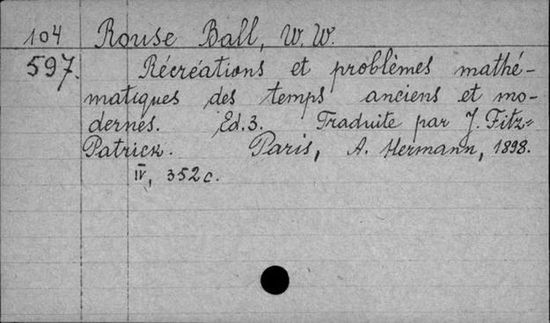 104 Rouse Ball, W. W.
597. Récréations et problèmes mathé-
matiques des temps anciens et mo-
dernes. Ed. 3. Traduite par J. Fitz-
Patrick. Paris, A. Hermann, 1898.
IV, 352 c.